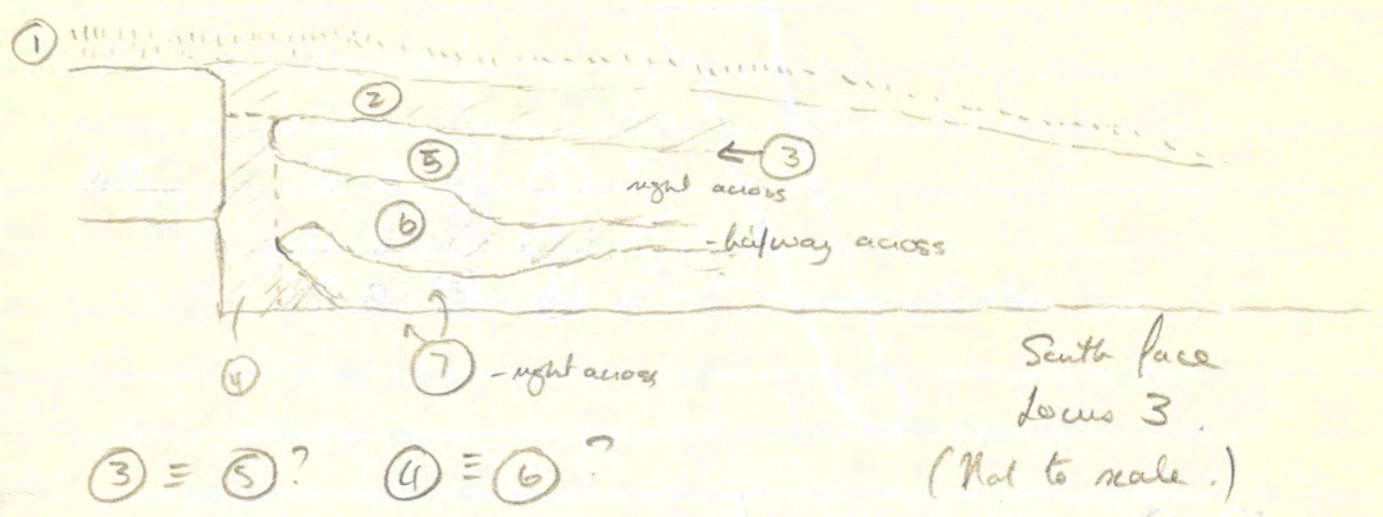 ①
②
← ③
⑤
right across
⑥
- halfway across
④
⑦ - right across
South face
Locus 3.
(Not to scale.)
③ ≡ ⑤? ④ ≡ ⑥?